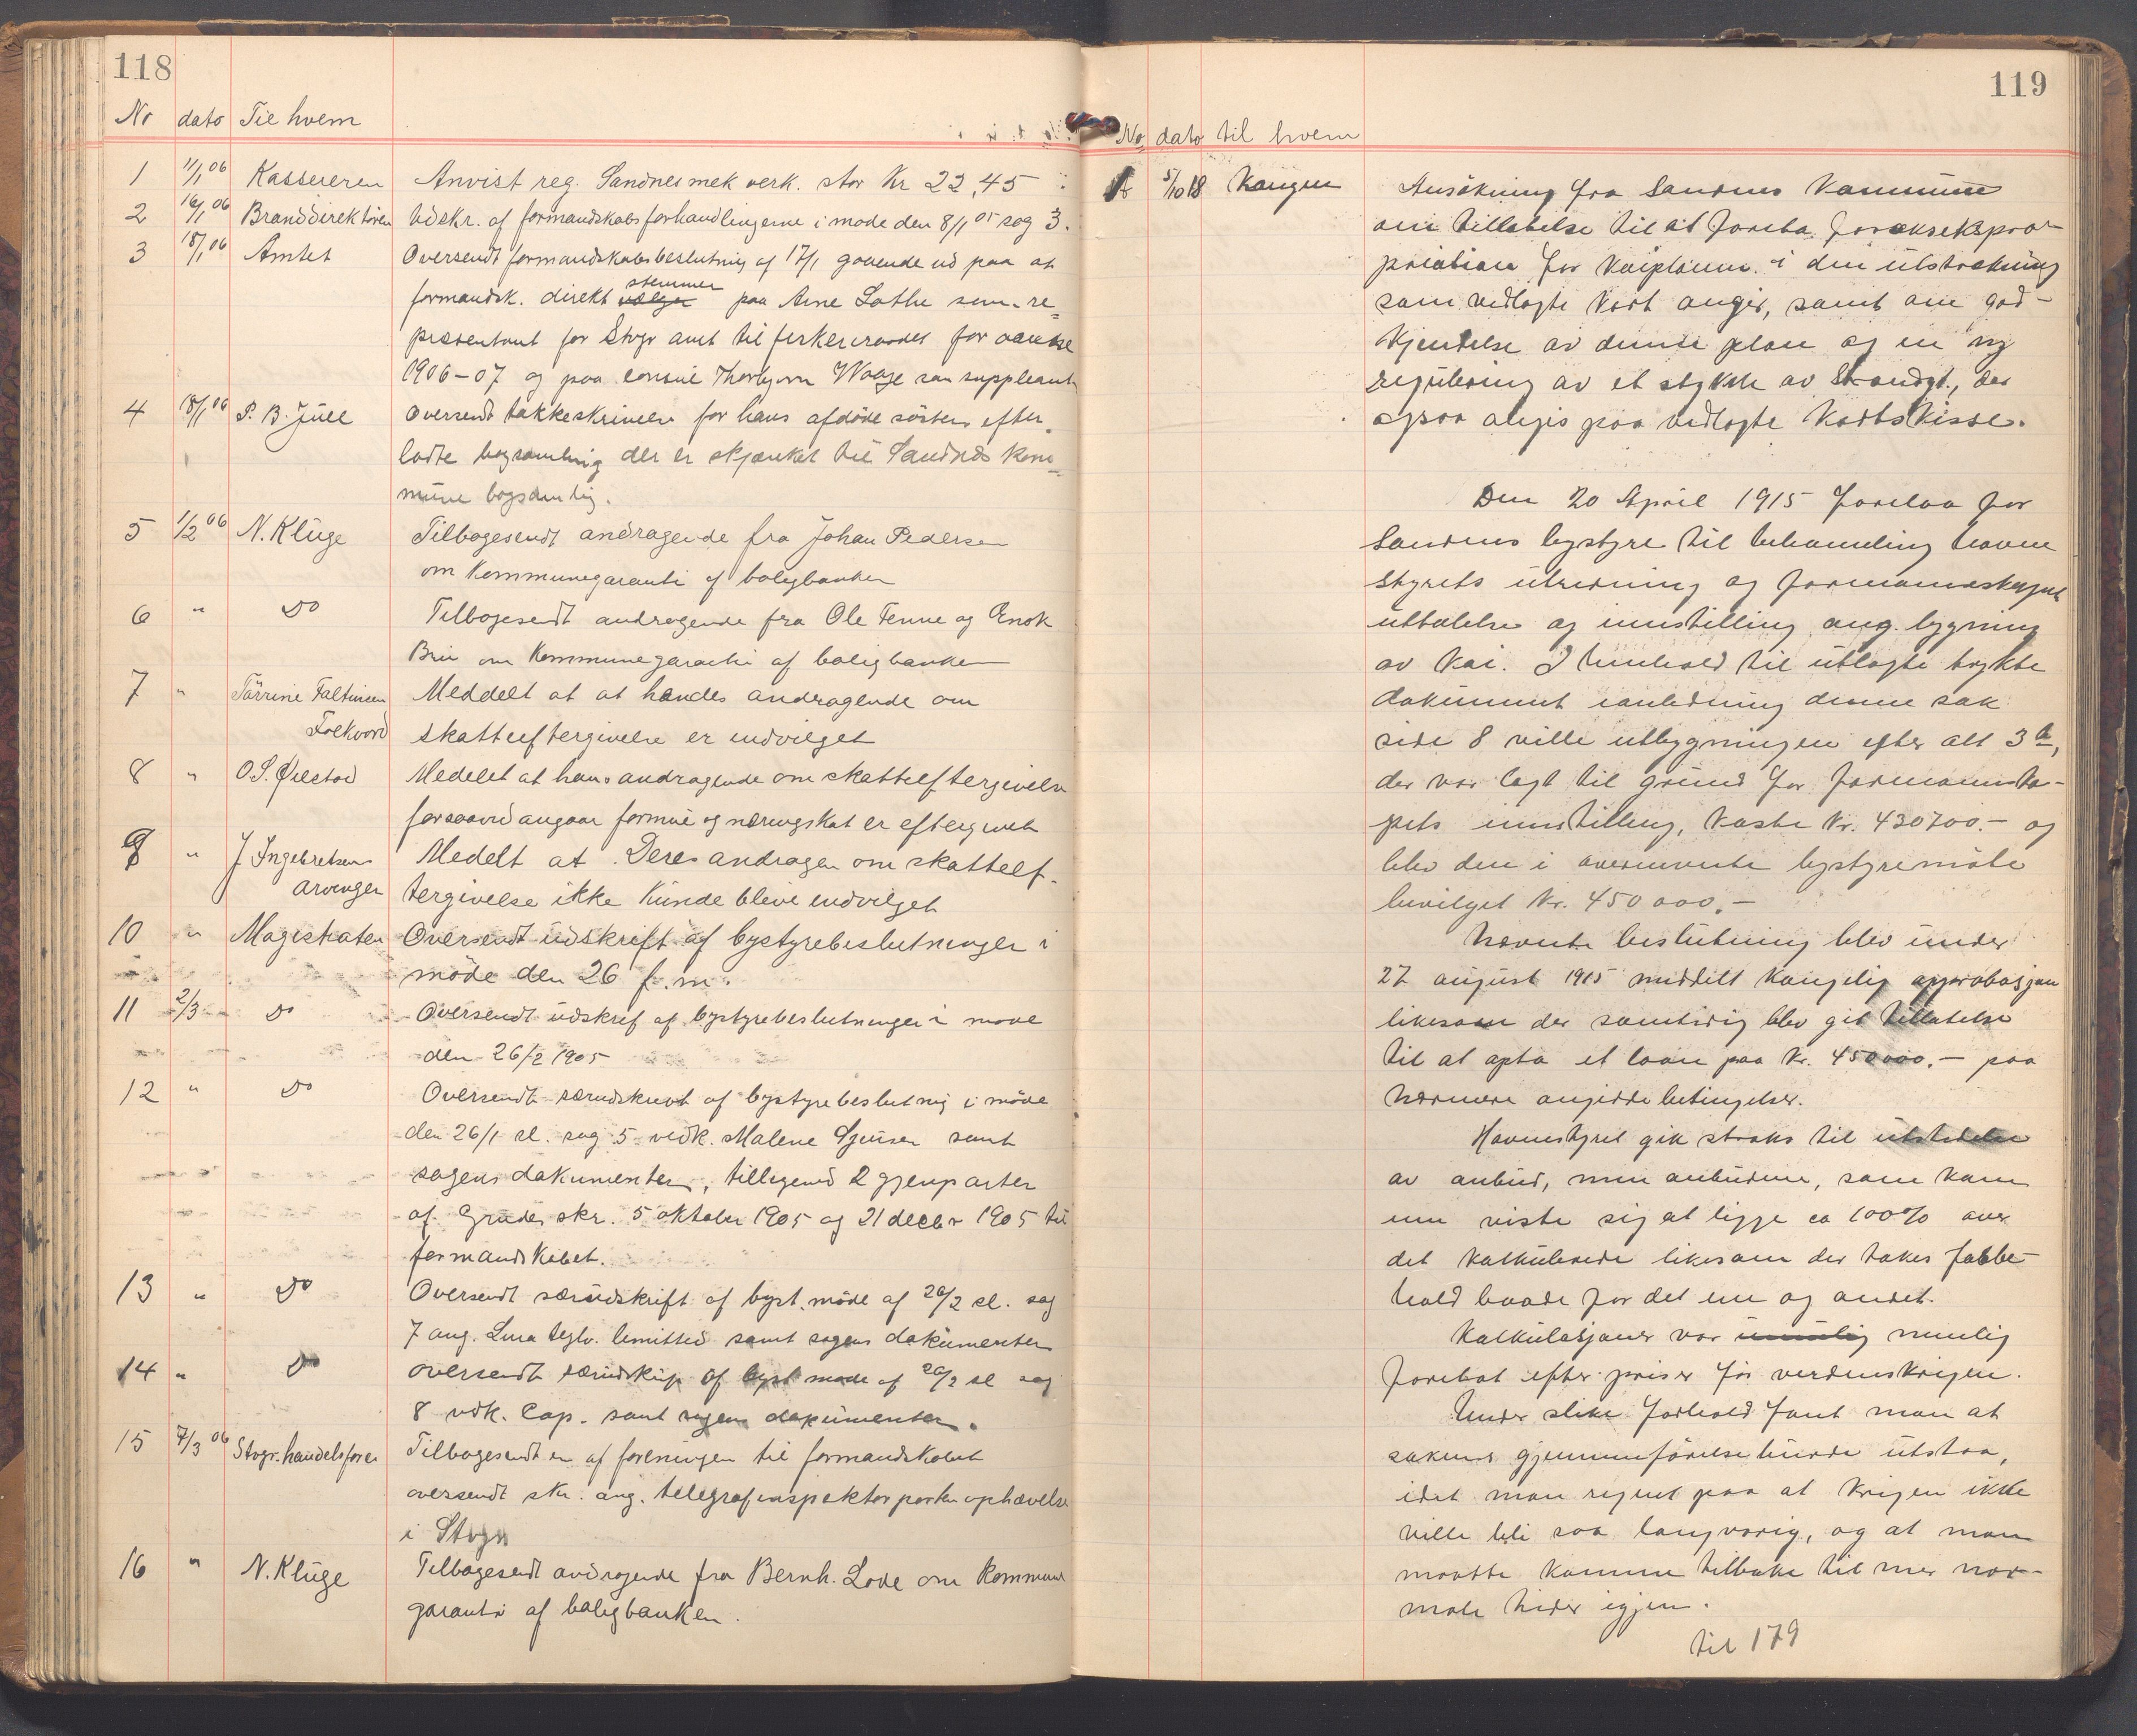 118
No dato Til hvem
1 11/1 06 Kassereren Anvist reg. Sandnes mek verk. stor Kr 22,45
2 16/1 06 Branddirektøren Udskr. af formandskabsforhandlingerne i møde den 8/1 05 sag 3.
3 18/1 06 Amtet Oversendt formandskabsbeslutning af 17/1 gaaende ud paa at
stemmer
formandsk. direkt vælger paa Arne Lothe som re-
præsentant for Stvgr amt til for aarene
1906-07 og paa consul Thorbjørn Waage som suppleant
4 18/1 06 P. B. Juell Oversendt takkeskrivelse for hans afdøde søsters efter-
ladte bogsamling der er skjænket til Sandnes kom-
mune bogsamling.
5 1/2 06 N. Kluge Tilbagesendt andragende fra Johan Pedersen
om Kommunegaranti af boligbanken
6 " Do Tilbagesendt andragende fra Ole Tenne og Enok
om Kommunegaranti af boligbanken
7 " Tørrine Faltinsen Meddelt at at hendes andragende om
Folkvord skatteeftergivelse er indvilget
8 " O. S. Øilestad Medelet at hans andragende om skatteeftergivelse
forsaavid angaar formue og næringskat er eftergivet
9 " J Ingebretsens Medelt at Deres andragen om skatteef-
arvinger tergivelse ikke kunde blive indvilget
10 " Magistraten Oversendt udskrift af bystyrebeslutninger i
møde den 26 f.m.
11 2/3 Do Oversendt udskrif af bystyrebeslutninger i møde
den 26/2 1905
12 " Do Oversendt særudskrivt af bystyrebeslutnig i møde
den 26/1 sl. sag 5 vedk. Malene samt
sagens dokumenter, tilligemed 2 gjenparter
af Grudes skr. 5 oktober 1905 og 21 decbr 1905 til
formandskabet.
13 " Do Oversendt særudskrift af byst. møde af 26/2 sl. sag
7 ang. Lura teglv. limitted samt sagens dokumenter
14 " Do oversendt særudskrip af byst møde af 26/2 sl sag
8 vdk. Cap. samt sagens dokumenter.
15 7/3 06 Stvgr. handelsforen Tilbagesendt en af foreningen til formandskabet
oversendt skr. ang. telegrafinspektørpostens ophævelse
i Stvgr
16 " N. Kluge Tilbagesendt andragende fra Bernh. Lode om Kommune
garanti af boligbanken.
119
No dato til hvem
5/10 18 Kongen Ansökning fra Sandnes Kommune
om tillatelse til at foreta forøksekspro-
priation for Kaiplanen i den utstrækning
som vedlagte Kart angir, samt om god-
kjendelse av denne plan og en ny
regulering av et stykke av Strandgt., der
ogsaa angis paa vedlagte Kartskisse.
Den 20 April 1915 forelaa for
Sandnes bystyre til behandling havne
styrets utredning og formannskapets
uttalelse og innstilling ang. bygning
av Kai. I henhold til utlagte trykte
dokument ianledning denne sak
side 8 ville utbygningen efter alt 3 b,
der var lagt til grund for formannska-
pets innstilling, koste Kr. 430700.- og
blev den i overnevnte bystyremøte
bevilget Kr. 450 000.-
Nævnte beslutning blev under
27 august 1915 meddelt kongelig approbasjon
likesom der samtidig blev git tillatelse
til at opta et laan paa Kr. 450000.- paa
nærmere angivne betingelser.
Havnestyret gik straks til utstedelse
av anbud, men anbudene, som kom
inn viste sig at ligge ca 100% over
det kalkulerede likesom der tokes forbe-
hold baade for det ene og andet.
Kalkulasjonen var nemlig
foretat efter priser før verdenskrigen.
Under slike forhold fant man at
sakens gjennemførelse burde utstaa,
idet man regnet paa at krigen ikke
ville bli saa langvarig, og at man
maatte komme tilbake til mer nor-
male tider igjen.
til 179